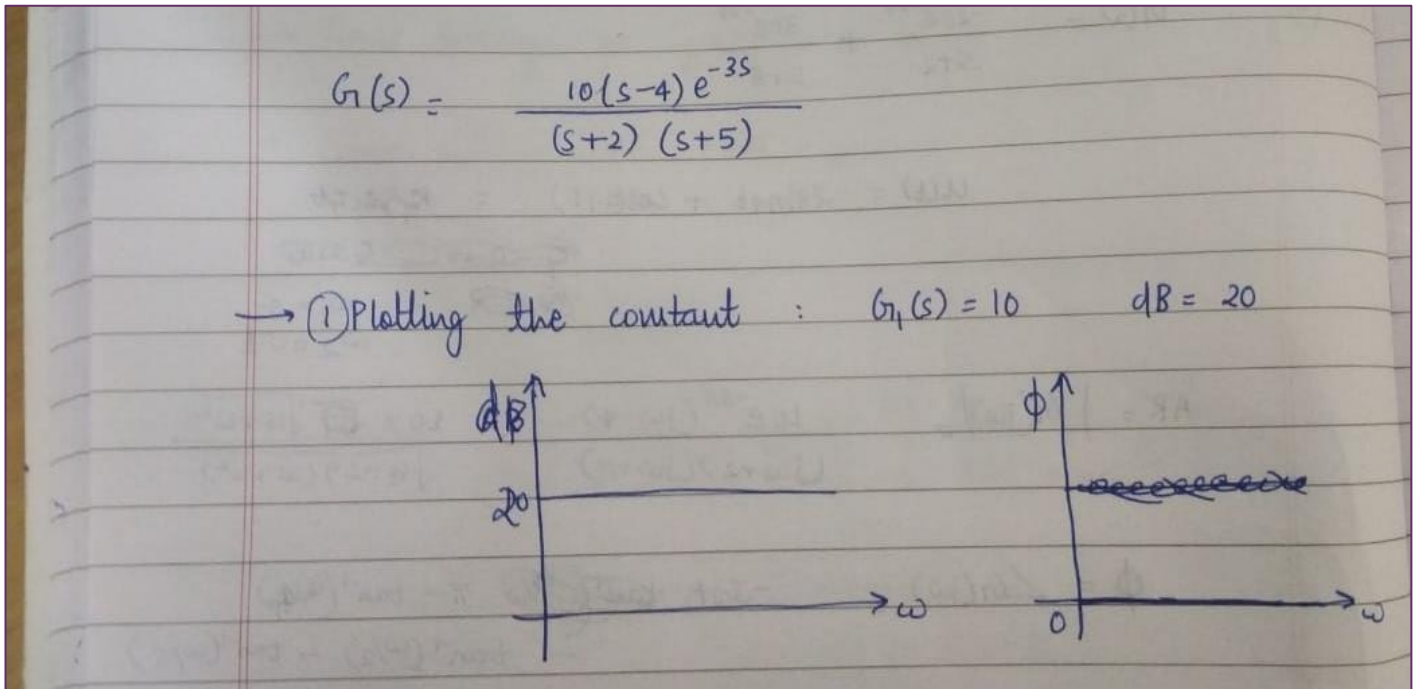 G(s) = 10(s-4) e^{-3s} / (s+2) (s+5)
→ ① Plotting the constant : G₁(s) = 10 dB = 20
dB ϕ
20
ω 0 ω